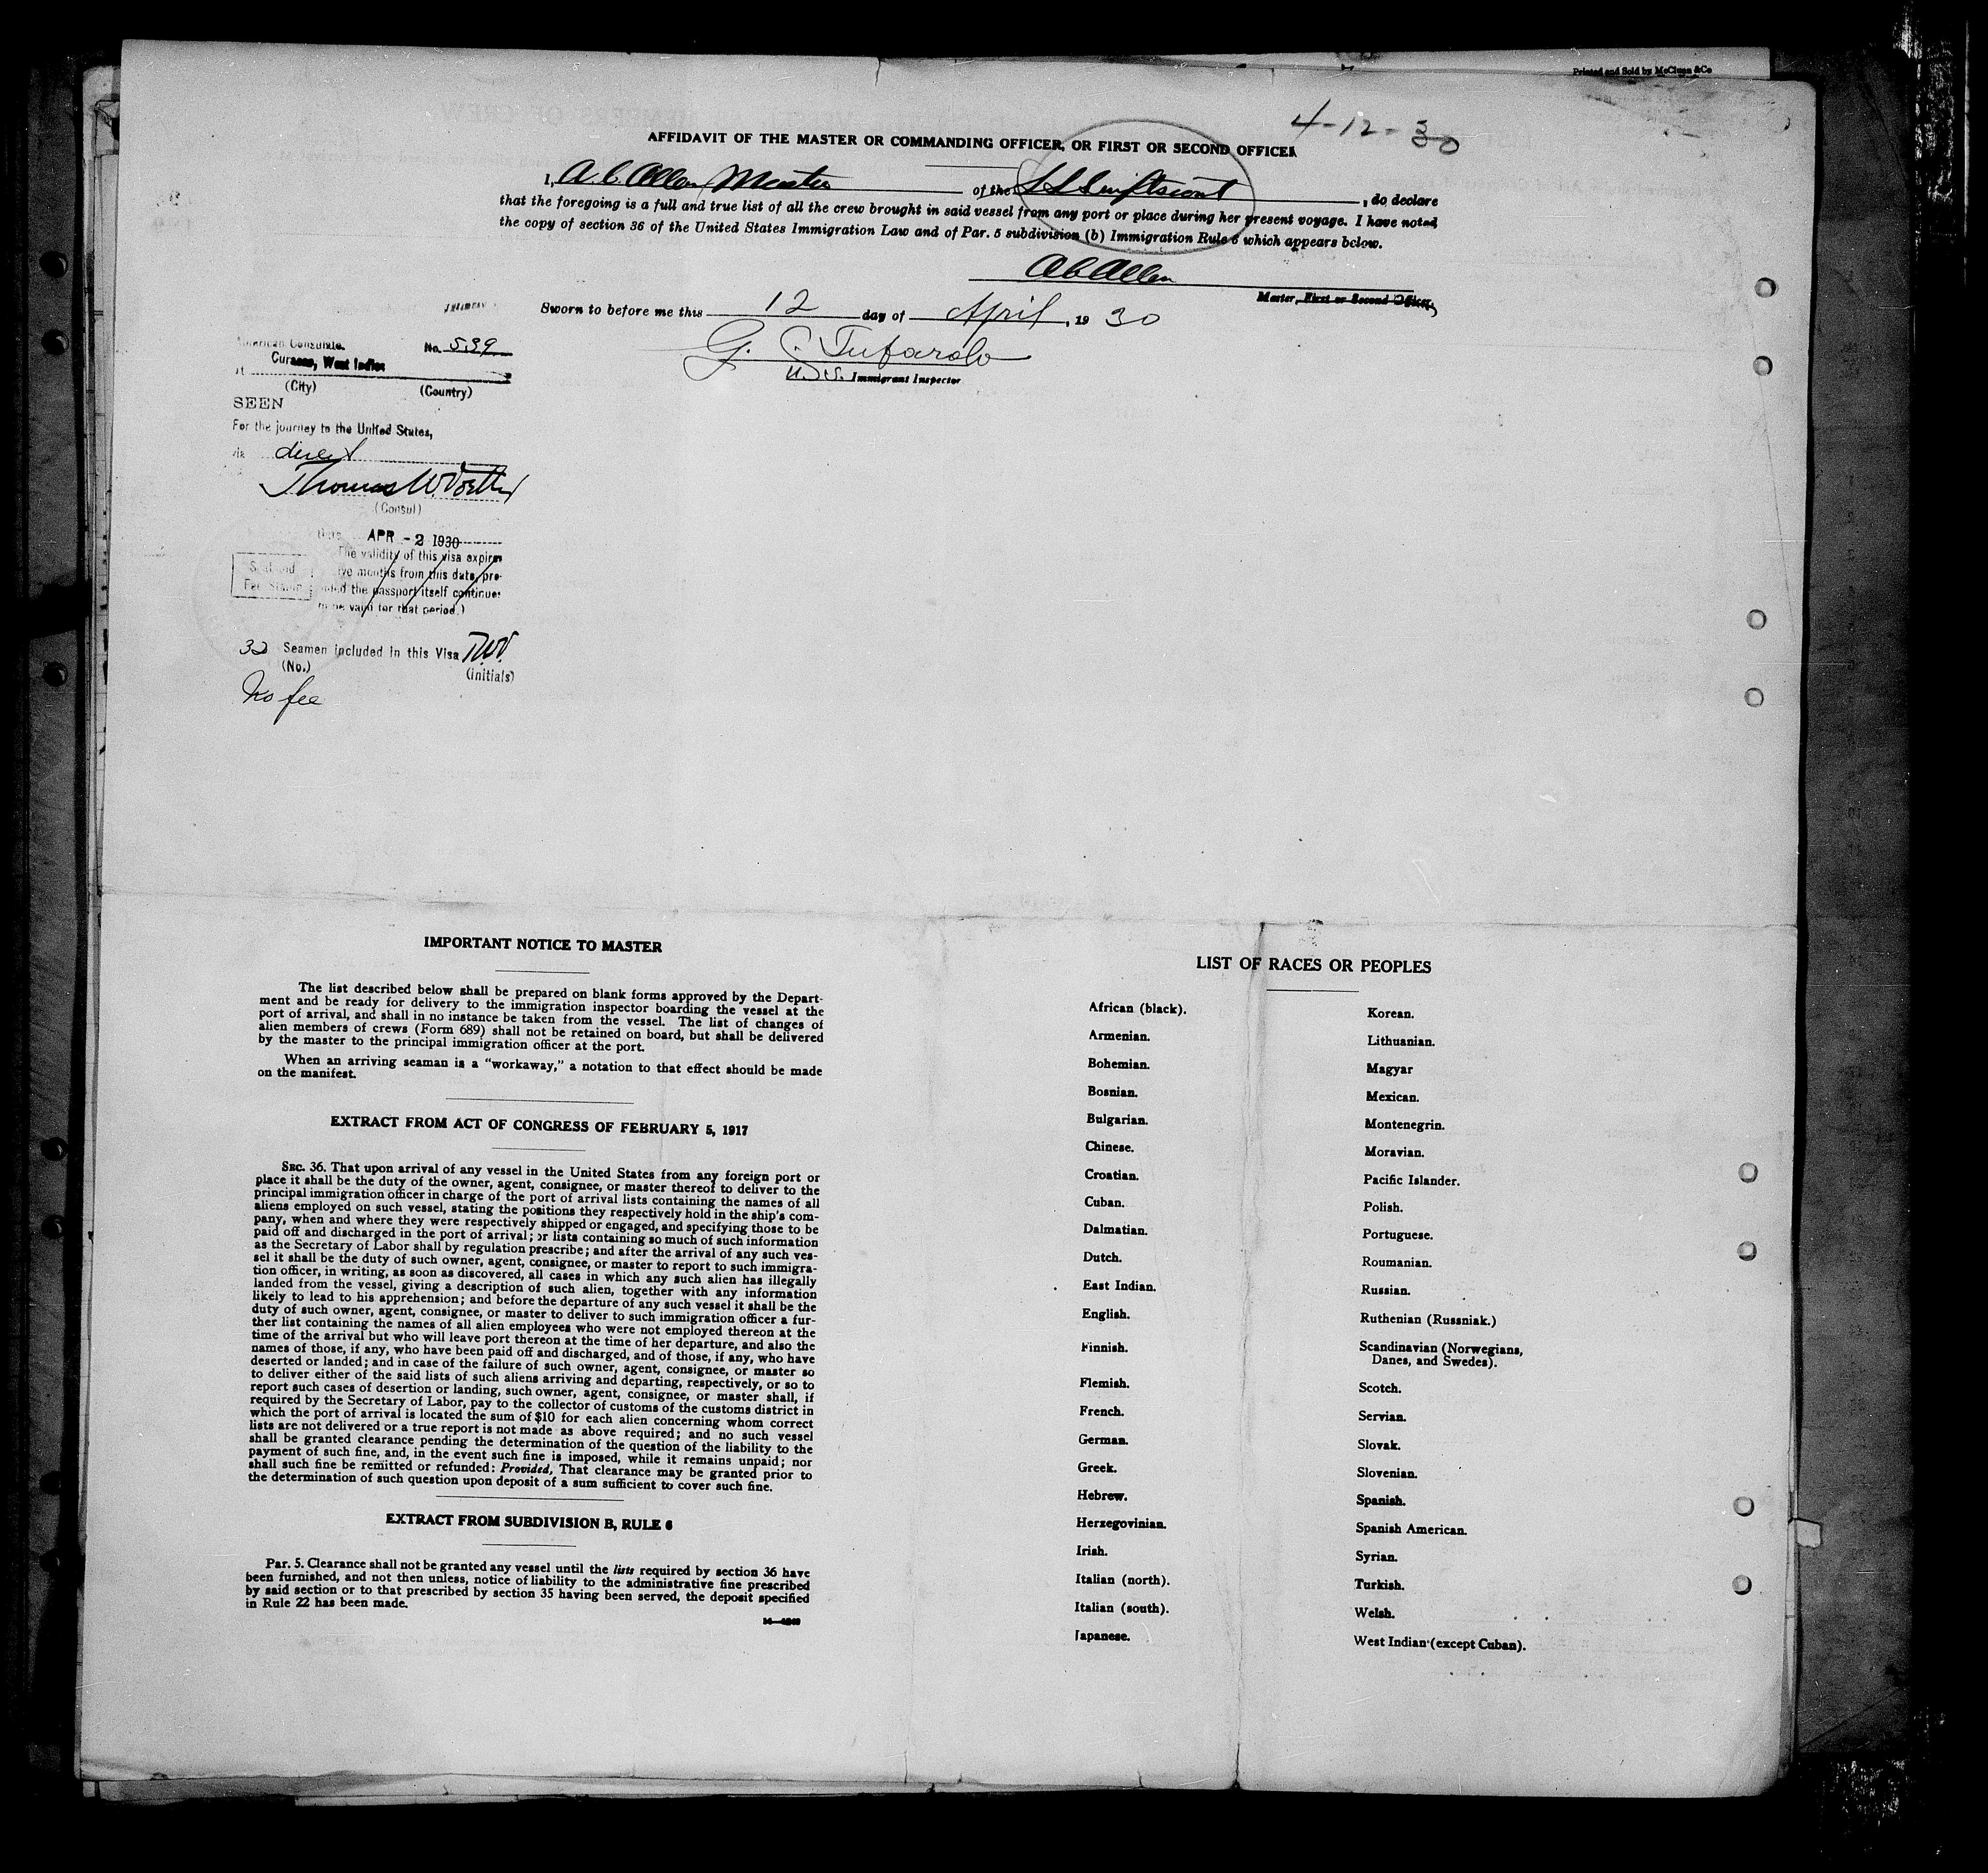 Printed and Sold by McClunn &Co
4-12-30
AFFIDAVIT OF THE MASTER OR COMMANDING OFFICER, OR FIRST OR SECOND OFFICER
I, A. C. Allen, Master of the SS Swiftscout, do declare
that the foregoing is a full and true list of all the crew brought in said vessel from any port or place during her present voyage. I have noted
the copy of section 36 of the United States Immigration Law and of Par. 5 subdivision (b) Immigration Rule 6 which appears below.
A C Allen
Master, First or Second Officer
Sworn to before me this 12 day of April, 19 30
G. C. Tufarolo
U.S. Immigrant Inspector
American Consulate. No. 539
Curacao, West Indies
at
(City) (Country)
SEEN
For the journey to the United States,
via direct
Thomas W. Voetter
(Consul)
Date APR - 2 1930
(The validity of this visa expires
twelve months from this date, pro-
vided the passport itself continues
to be valid for that period.)
Seal and
Fee Stamp
32 Seamen included in this Visa T.W.V.
(No.) (initials)
No fee
IMPORTANT NOTICE TO MASTER
The list described below shall be prepared on blank forms approved by the Depart-
ment and be ready for delivery to the immigration inspector boarding the vessel at the
port of arrival, and shall in no instance be taken from the vessel. The list of changes of
alien members of crews (Form 689) shall not be retained on board, but shall be delivered
by the master to the principal immigration officer at the port.
When an arriving seaman is a "workaway," a notation to that effect should be made
on the manifest.
EXTRACT FROM ACT OF CONGRESS OF FEBRUARY 5, 1917
SEC. 36. That upon arrival of any vessel in the United States from any foreign port or
place it shall be the duty of the owner, agent, consignee, or master thereof to deliver to the
principal immigration officer in charge of the port of arrival lists containing the names of all
aliens employed on such vessel, stating the positions they respectively hold in the ship's com-
pany, when and where they were respectively shipped or engaged, and specifying those to be
paid off and discharged in the port of arrival; or lists containing so much of such information
as the Secretary of Labor shall by regulation prescribe; and after the arrival of any such ves-
sel it shall be the duty of such owner, agent, consignee, or master to report to such immigra-
tion officer, in writing, as soon as discovered, all cases in which any such alien has illegally
landed from the vessel, giving a description of such alien, together with any information
likely to lead to his apprehension; and before the departure of any such vessel it shall be the
duty of such owner, agent, consignee, or master to deliver to such immigration officer a fur-
ther list containing the names of all alien employees who were not employed thereon at the
time of the arrival but who will leave port thereon at the time of her departure, and also the
names of those, if any, who have been paid off and discharged, and of those, if any, who have
deserted or landed; and in case of the failure of such owner, agent, consignee, or master so
to deliver either of the said lists of such aliens arriving and departing, respectively, or so to
report such cases of desertion or landing, such owner, agent, consignee, or master shall, if
required by the Secretary of Labor, pay to the collector of customs of the customs district in
which the port of arrival is located the sum of $10 for each alien concerning whom correct
lists are not delivered or a true report is not made as above required; and no such vessel
shall be granted clearance pending the determination of the question of the liability to the
payment of such fine, and, in the event such fine is imposed, while it remains unpaid; nor
shall such fine be remitted or refunded: Provided, That clearance may be granted prior to
the determination of such question upon deposit of a sum sufficient to cover such fine.
EXTRACT FROM SUBDIVISION B, RULE 6
Par. 5. Clearance shall not be granted any vessel until the lists required by section 36 have
been furnished, and not then unless, notice of liability to the administrative fine prescribed
by said section or to that prescribed by section 35 having been served, the deposit specified
in Rule 22 has been made.
LIST OF RACES OR PEOPLES
African (black).
Armenian.
Bohemian.
Bosnian.
Bulgarian.
Chinese.
Croatian.
Cuban.
Dalmatian.
Dutch.
East Indian.
English.
Finnish.
Flemish.
French.
German.
Greek.
Hebrew.
Herzegovinian.
Irish.
Italian (north).
Italian (south).
Japanese.
Korean.
Lithuanian.
Magyar
Mexican.
Montenegrin.
Moravian.
Pacific Islander.
Polish.
Portuguese.
Roumanian.
Russian.
Ruthenian (Russniak.)
Scandinavian (Norwegians,
Danes, and Swedes).
Scotch.
Servian.
Slovak.
Slovenian.
Spanish.
Spanish American.
Syrian.
Turkish.
Welsh.
West Indian (except Cuban).